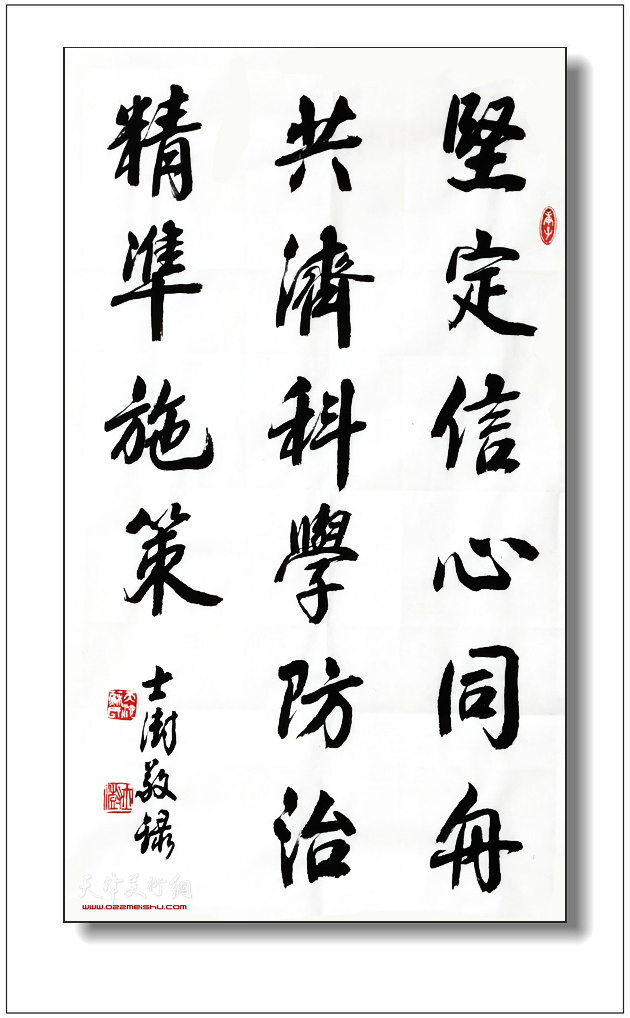 堅定信心同舟
共濟科學防治
精準施策
士澍敬录
天津美術網
www.022meishu.com